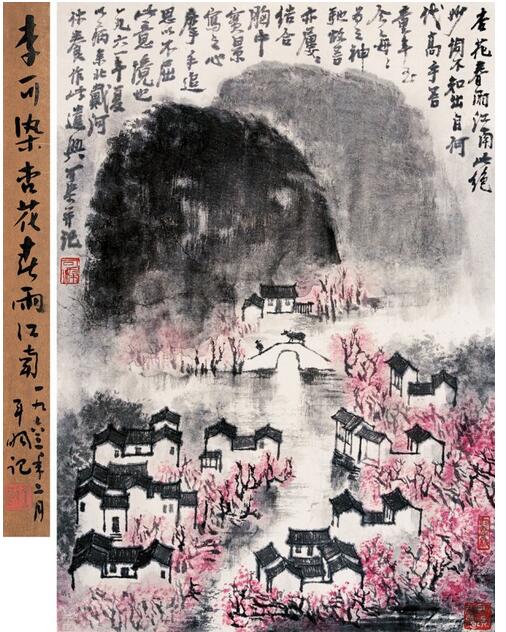 杏花春雨江南此绝
妙词不知出自何
代高手吾
童年
每每
为之神
驰故吾
亦屡屡
结合
胸中
实景
写之心
摩手追
思以不屈
此意境也
一九六一年夏
以病来北戴河
休养作此遣兴可染并记
李可染杏花春雨江南
一九六三年三月
记